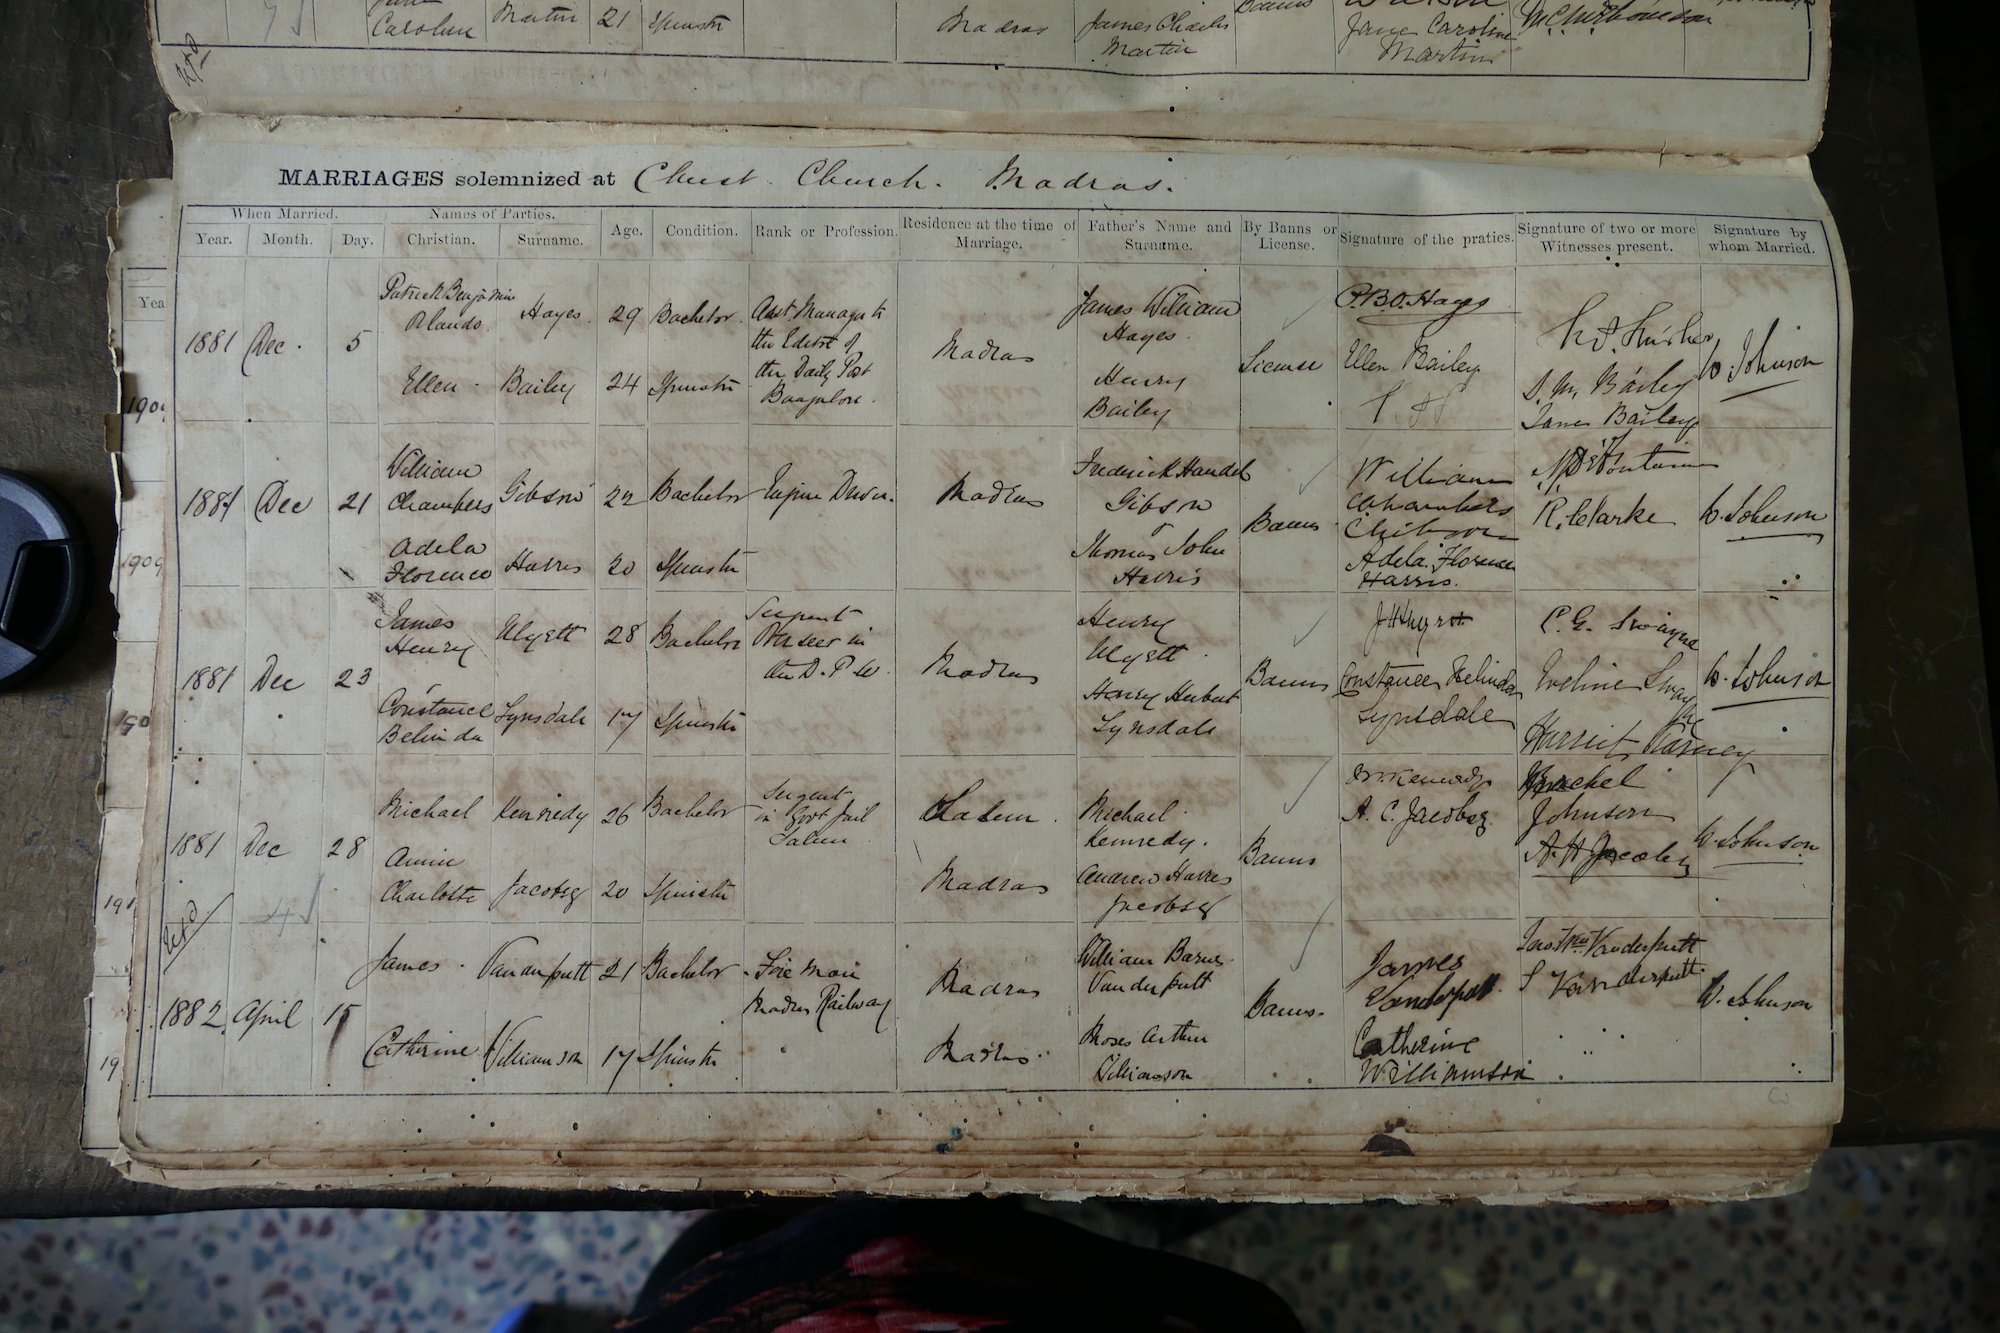 Caroline Martin 21 Spinster Madras James Charles Martin Banns Jane Caroline Martin
MARRIAGES solemnized at Christ Church. Madras.
When Married. Names of Parties. Age. Condition. Rank or Profession. Residence at the time of Marriage. Father's Name and Surname. By Banns or License. Signature of the praties. Signature of two or more Witnesses present. Signature by whom Married.
Year. Month. Day. Christian. Surname.
Yea
1881 Dec. 5
Patrick Benjamin Orlando Hayes 29 Bachelor Asst. Manager to the Editor of the Daily Post Bangalore.
Madras
James William Hayes
License
P.B.O. Hayes
Ellen Bailey 24 Spinster
Henry Bailey
Ellen Bailey
S. M. Bailey
James Bailey
W. Johnson
1881 Dec 21
William Chambers Gibson 22 Bachelor Engine Driver.
Madras
Frederick Handel Gibson
Banns
William Chambers Gibson
R. Clarke
W. Johnson
Adela Florence Harris 20 Spinster
Thomas John Harris
Adela Florence Harris.
1881 Dec 23
James Henry 28 Bachelor Sergeant Overseer in the D.P.W.
Madras
Henry
Banns
C. G. Swayne
Constance Belinda Lynsdale 17 Spinster
Henry Herbert Lynsdale
Constance Belinda Lynsdale
Eveline Swayne
Harriet
W. Johnson
1881 Dec 28
Michael Kennedy 26 Bachelor Sergeant in Govt Jail Salem
Salem.
Michael Kennedy.
Banns
M. Kennedy
A. C. Jacobsz
Rachel Johnson
A. H. Jacobsz
W. Johnson
Annie Charlotte Jacobsz 20 Spinster
Madras
Andrew Harris Jacobsz
1882 April 15
James Vanderputt 21 Bachelor Fireman Madras Railway
Madras
William Barnes Vanderputt
Banns.
James Vanderputt.
Jas. Wm. Vanderputt
S Vanderputt.
W. Johnson
Catherine Williamson 17 Spinster
Madras.
Moses Arthur Williamson
Catherine Williamson